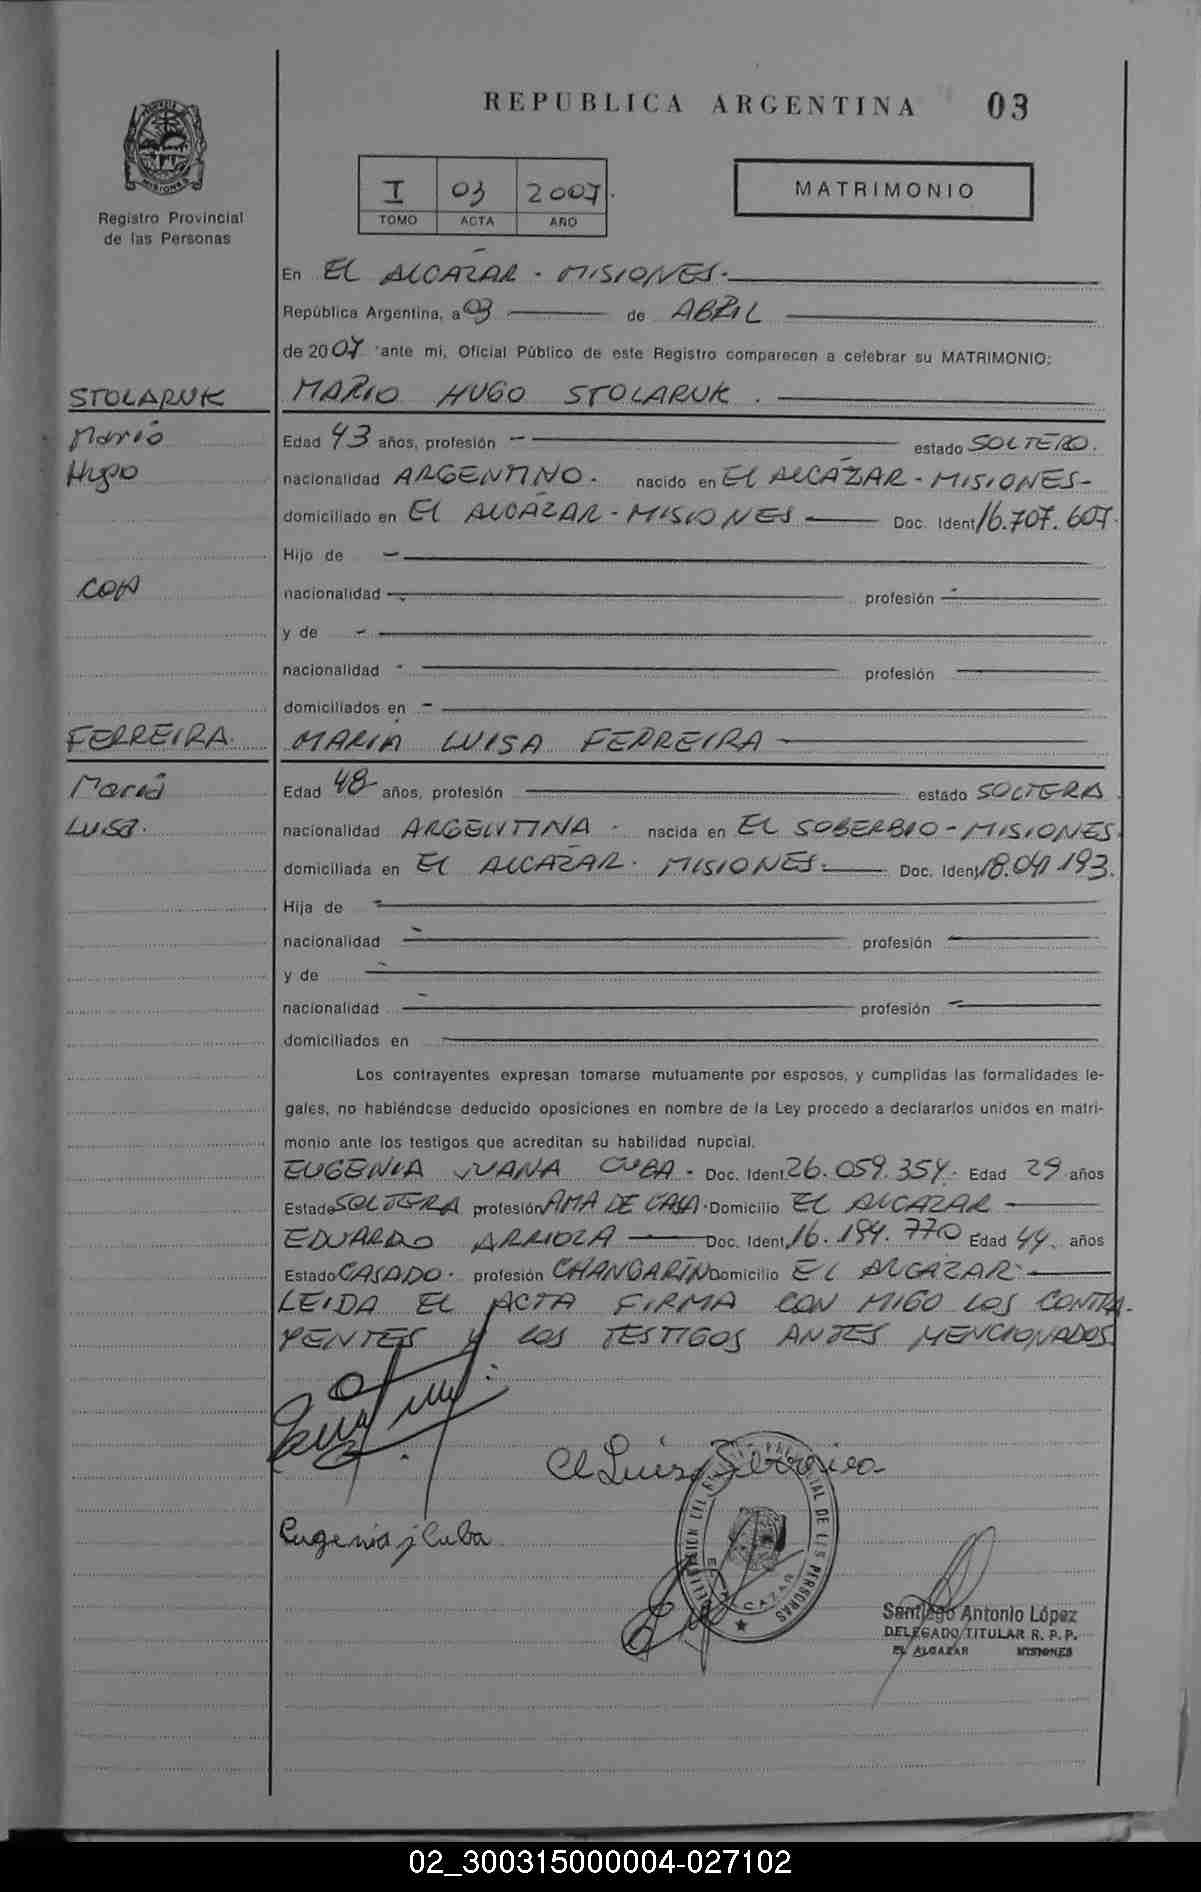 REPUBLICA ARGENTINA 03
MISIONES
Registro Provincial
de las Personas
I 03 2007.
TOMO ACTA AÑO
MATRIMONIO
En EL ALCAZAR - MISIONES.
República Argentina, a 03 de ABRIL
de 2007 ante mi, Oficial Público de este Registro comparecen a celebrar su MATRIMONIO:
STOLARUK MARIO HUGO STOLARUK.
Mario Edad 43 años, profesión - estado SOLTERO.
Hugo nacionalidad ARGENTINO. nacido en EL ALCAZAR - MISIONES-
domiciliado en EL ALCAZAR - MISIONES Doc. Ident 16.707.607.
Hijo de -
CON nacionalidad - profesión -
y de -
nacionalidad - profesión
domiciliados en -
FERREIRA. MARIA LUISA FERREIRA
Maria Edad 48 años, profesión estado SOLTERA.
Luisa. nacionalidad ARGENTINA. nacida en EL SOBERBIO - MISIONES.
domiciliada en EL ALCAZAR. MISIONES. Doc. Ident 18.041.193.
Hija de -
nacionalidad - profesión -
y de -
nacionalidad - profesión -
domiciliados en
Los contrayentes expresan tomarse mutuamente por esposos, y cumplidas las formalidades le-
gales, no habiéndose deducido oposiciones en nombre de la Ley procedo a declararlos unidos en matri-
monio ante los testigos que acreditan su habilidad nupcial.
EUGENIA JUANA CUBA - Doc. Ident 26.059.354. Edad 29 años
Estado SOLTERA profesión AMA DE CASA. Domicilio EL ALCAZAR
EDUARDO ARRIOLA Doc. Ident. 16.194.770 Edad 44. años
Estado CASADO. profesión CHANGARÍN Domicilio EL ALCAZAR.
LEIDA EL ACTA FIRMA CON MIGO LOS CONTRA-
YENTES Y LOS TESTIGOS ANTES MENCIONADOS.
Eugenia j Cuba
PROVINCIAL DE LAS PERSONAS
EL ALCAZAR
Santiago Antonio López
DELEGADO TITULAR R. P. P.
EL ALCAZAR MISIONES
02_300315000004-027102